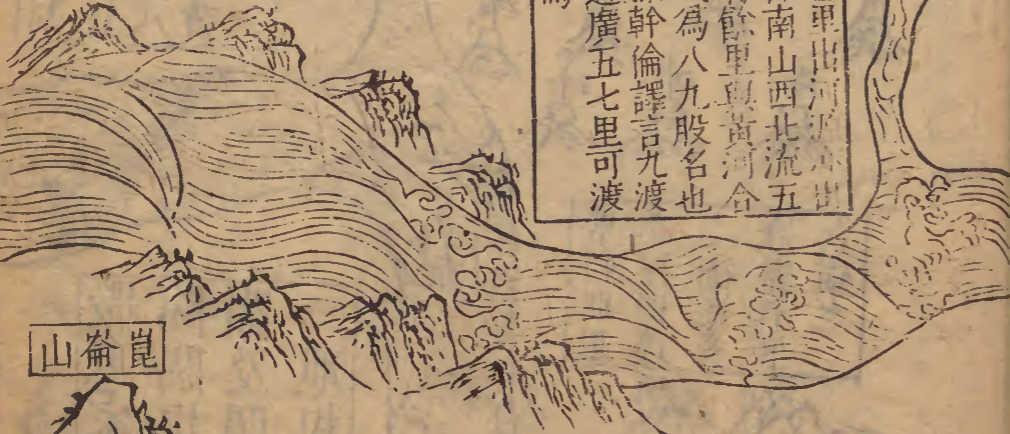 里出河源
南山西北流五
餘里與黃河合
為八九股名也
幹倫譯言九渡
廣五七里可渡
崑崙山